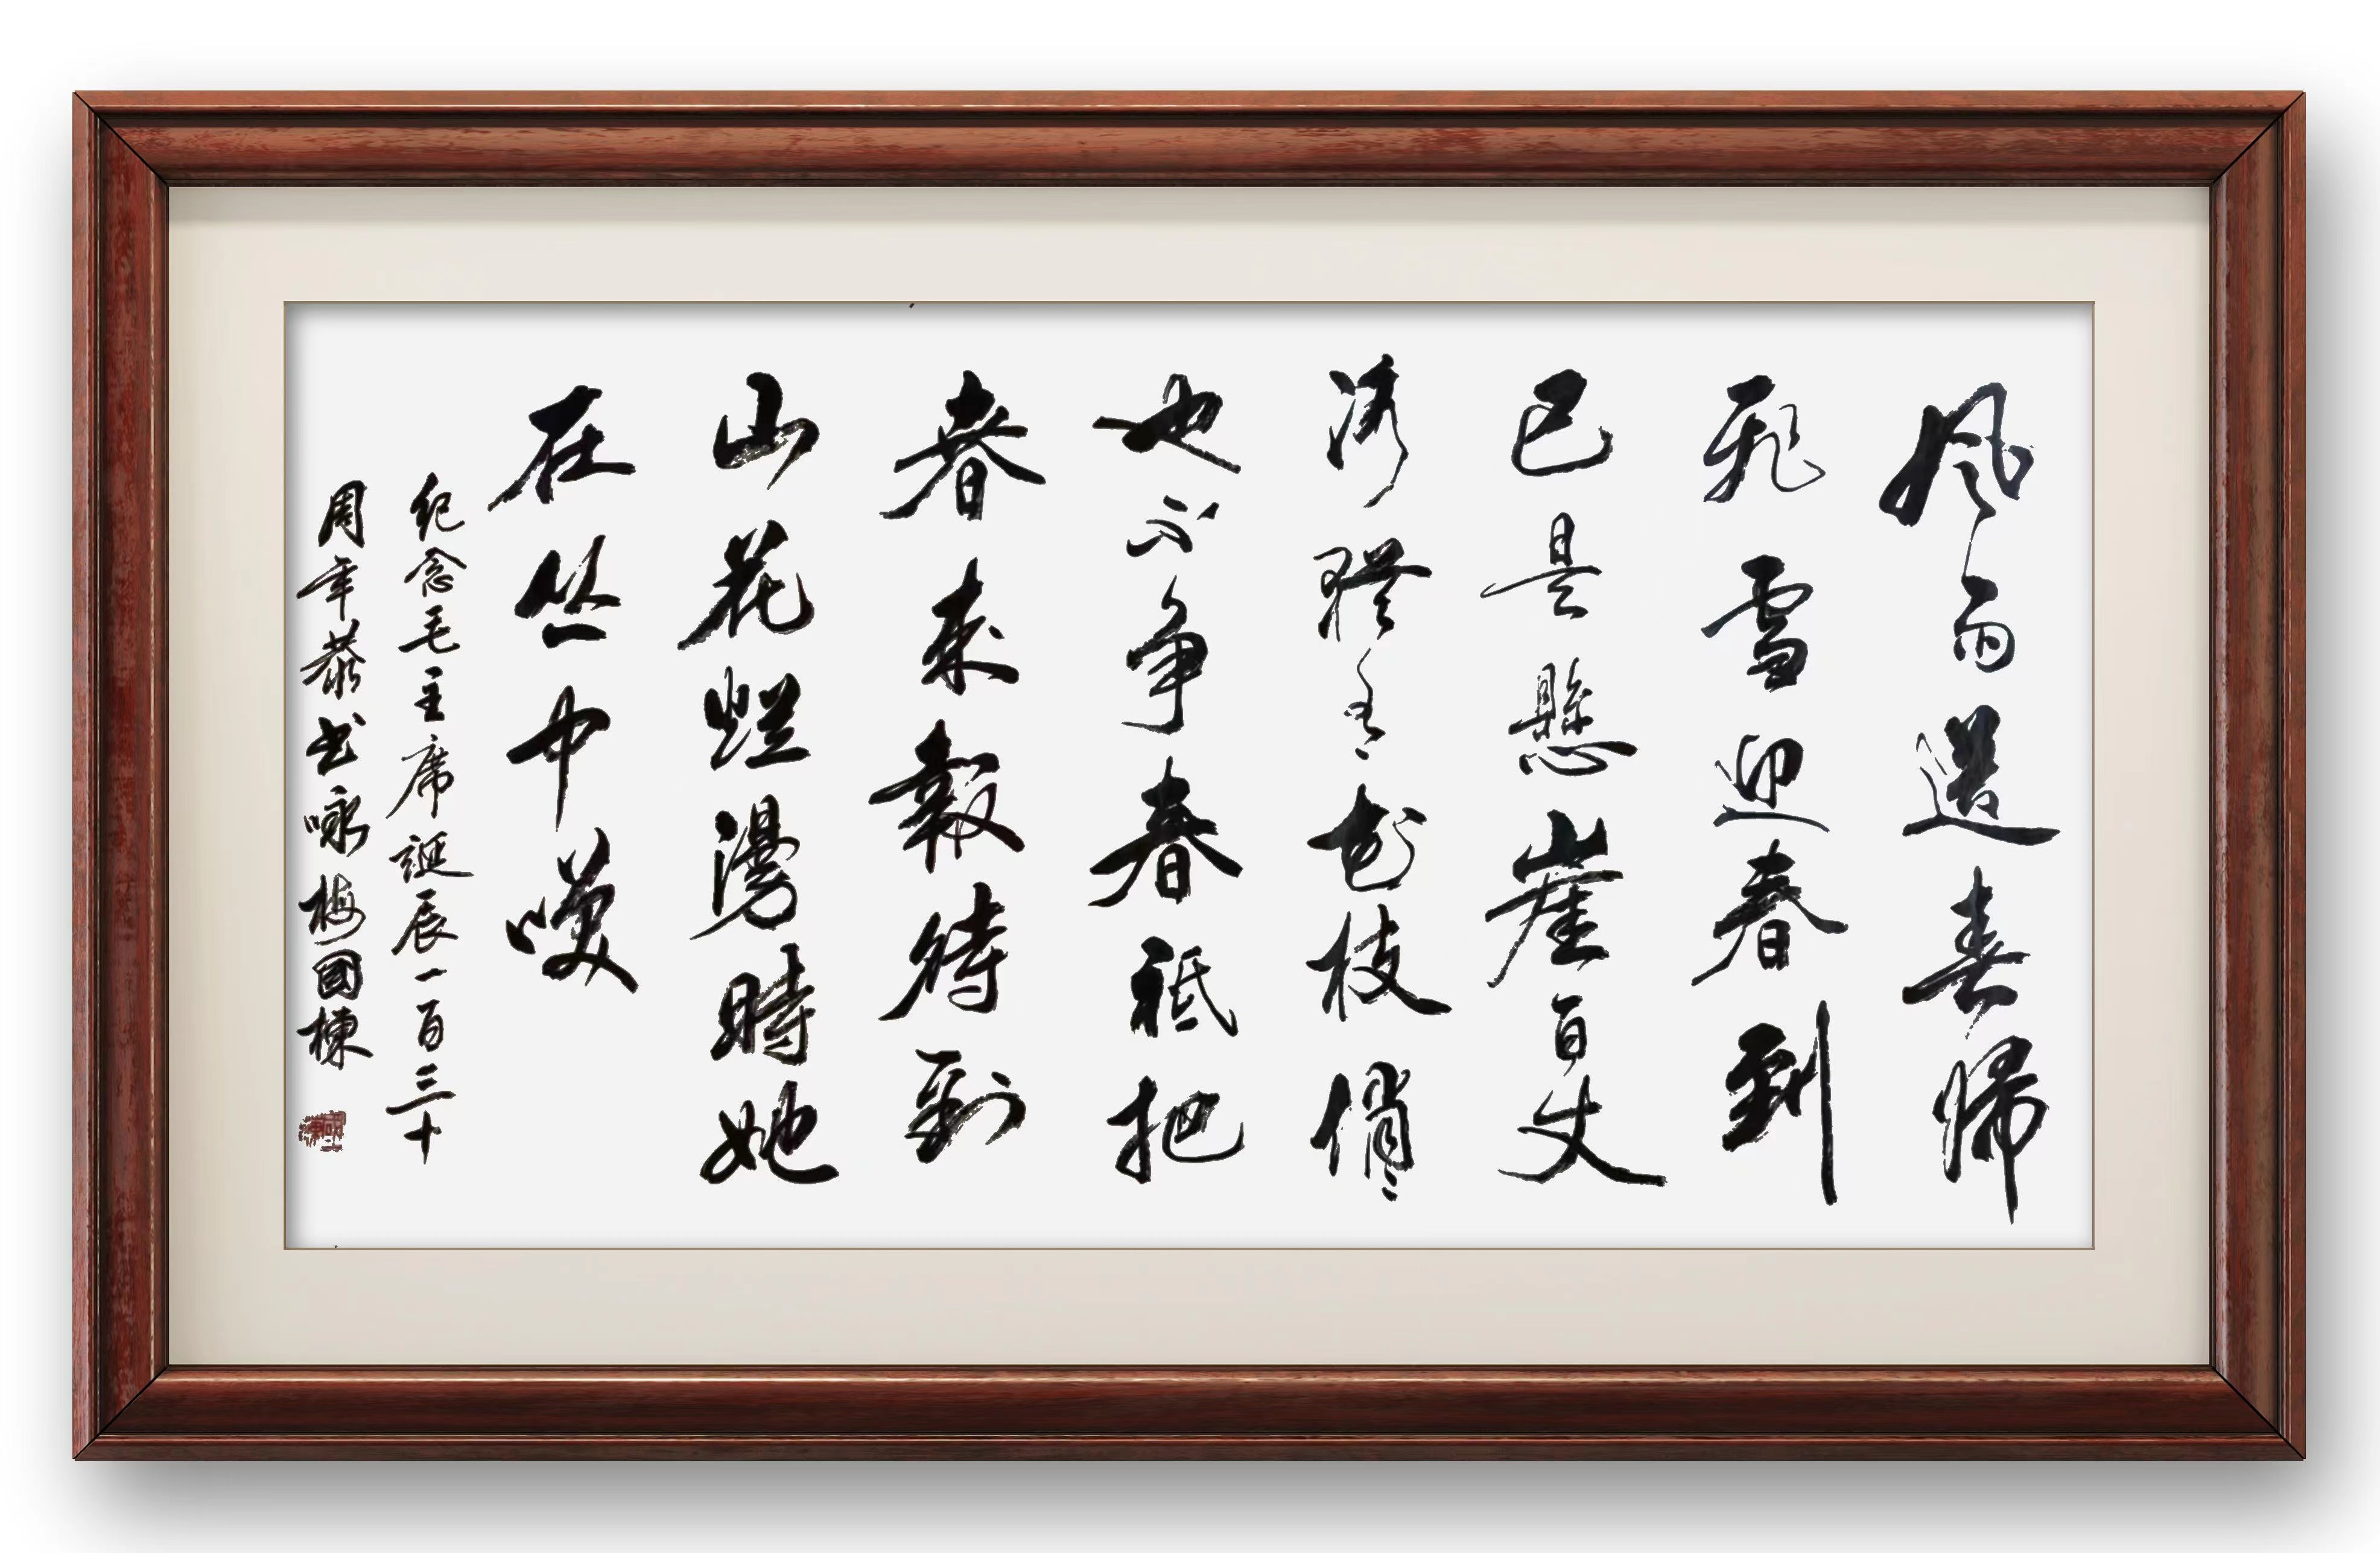 風雨送春歸
飛雪迎春到
已是懸崖百丈
冰猶有花枝俏〻
也不争春祗把
春来報待到
山花爛漫時她
在丛中咲
纪念毛主席誕辰一百三十
周年恭书咏梅國棟